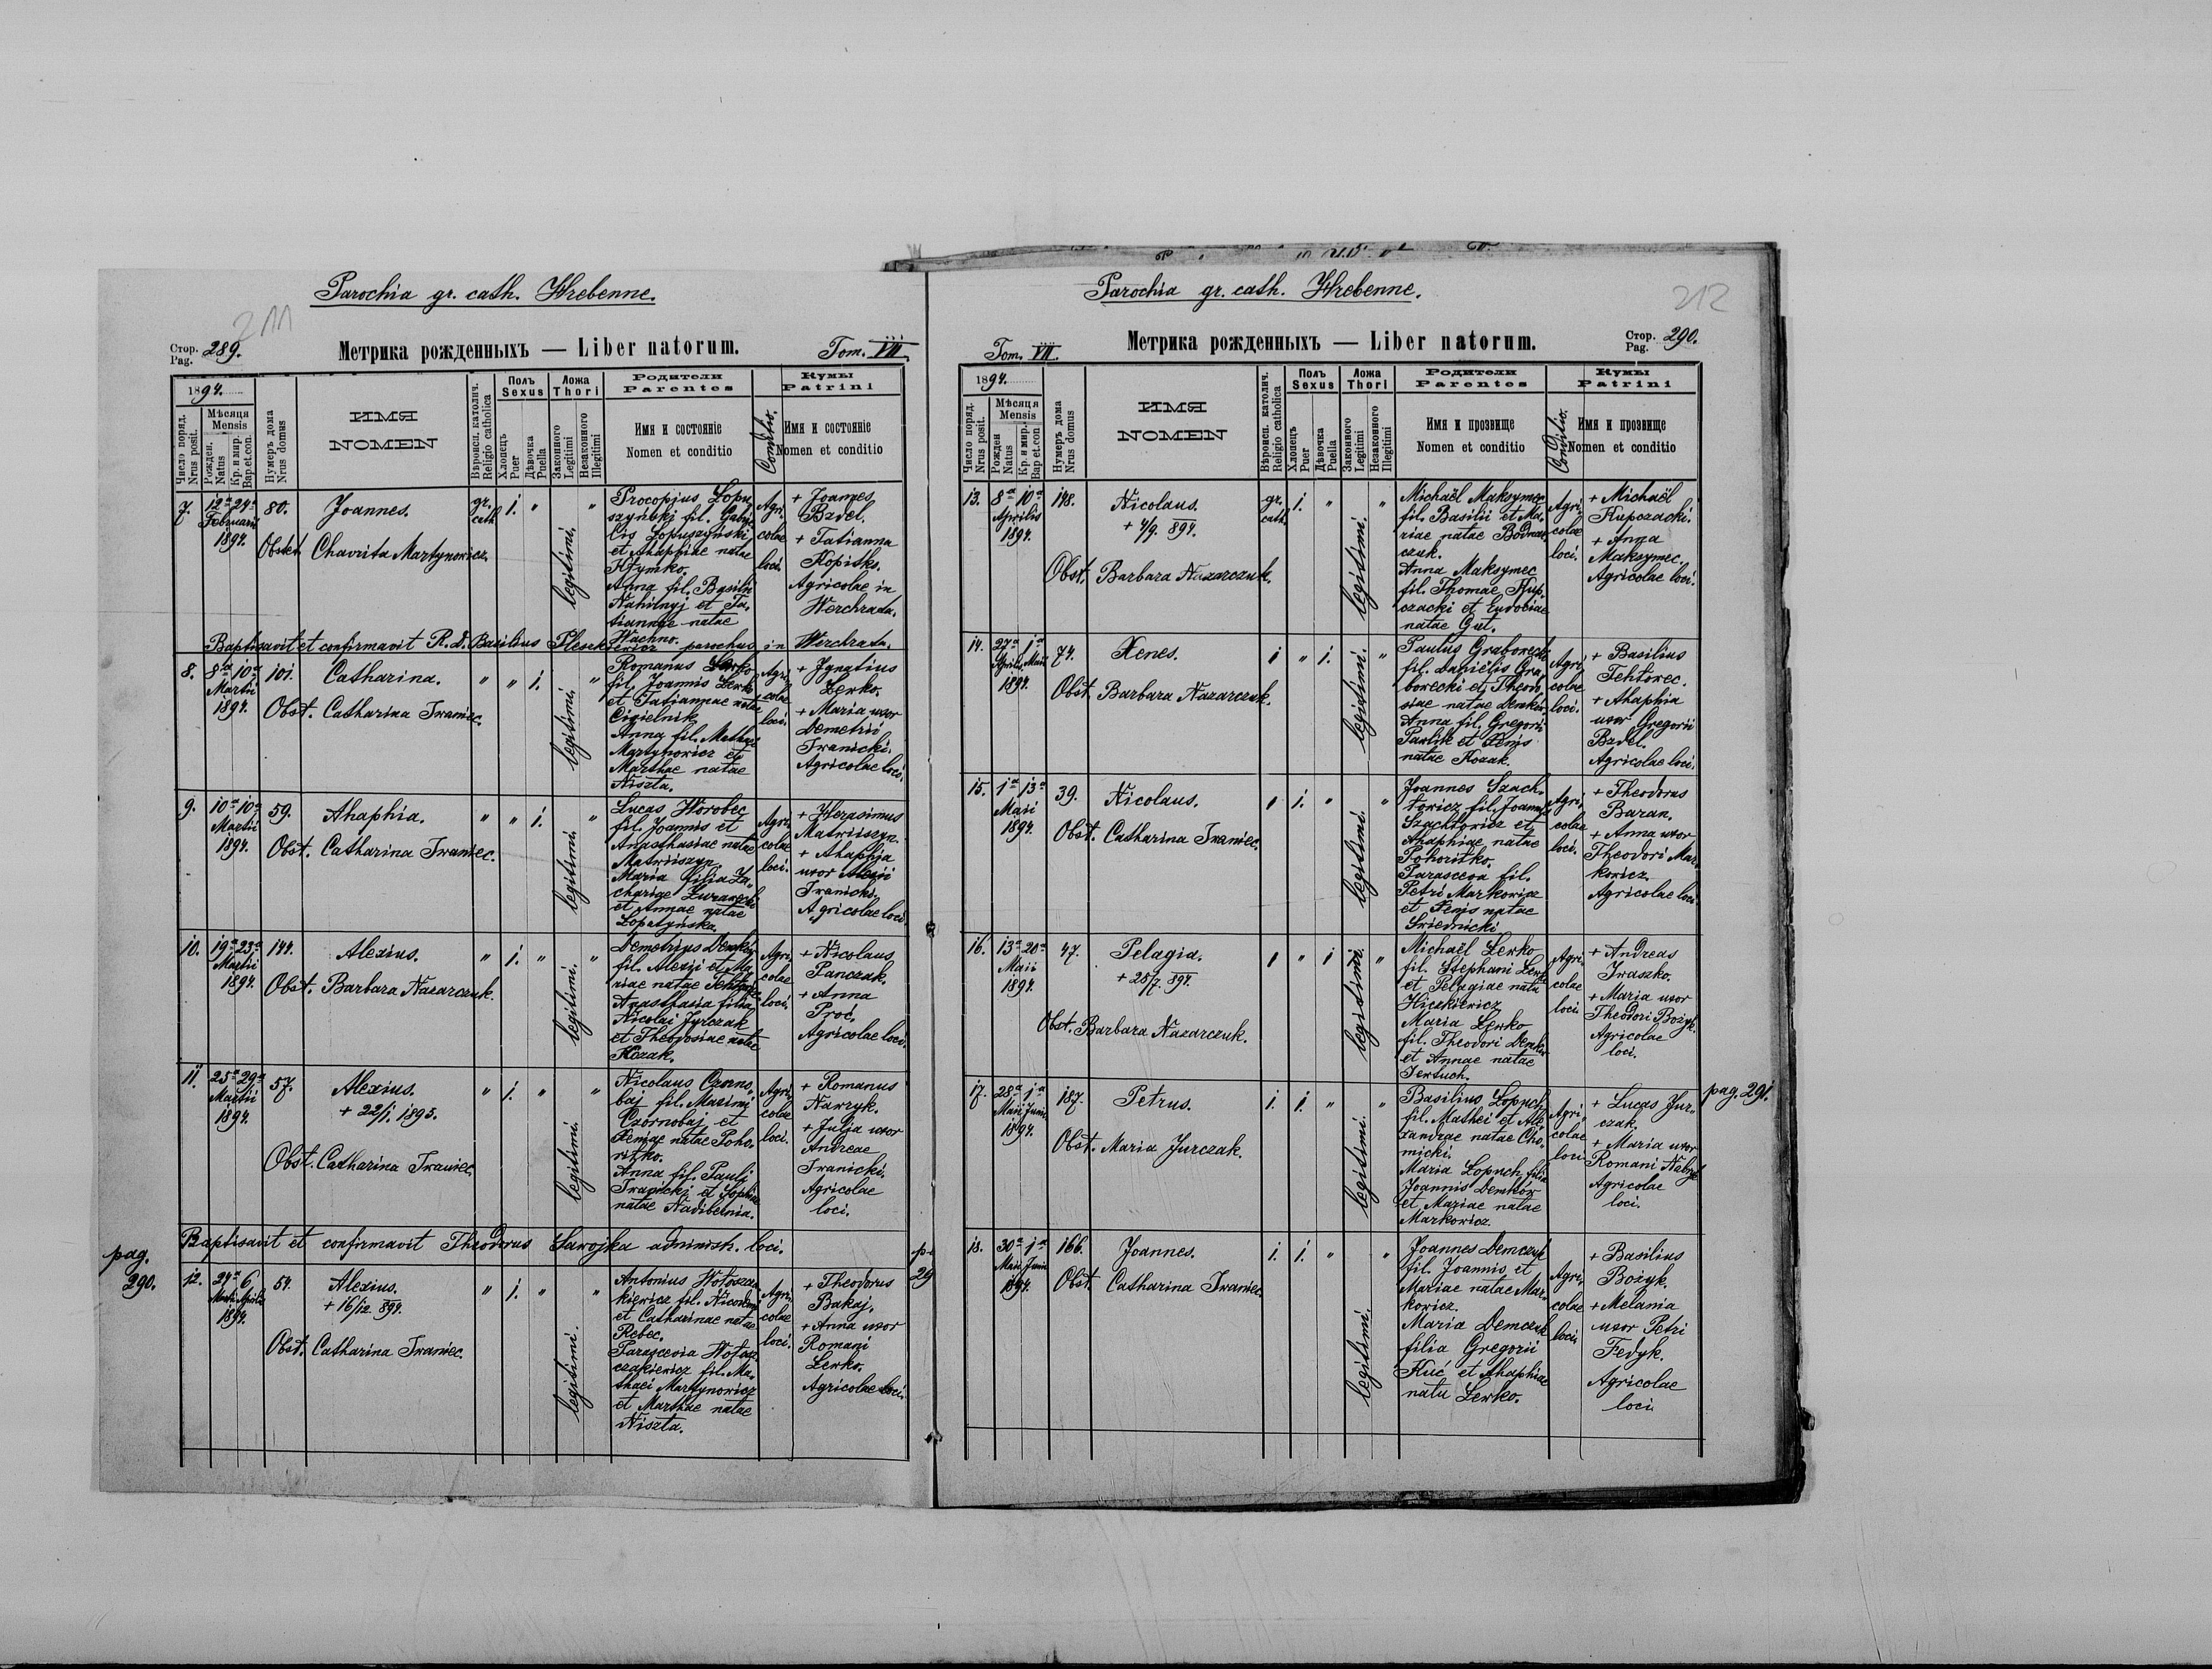 Parochia gr. cath. Hrebenne.
211
Стор.
Pag. 289.
Метрика рожденныхъ — Liber natorum.
Tom. VII.
1894.
Число поряд.
Nrus posit.
Мѣсяця
Mensis
Рожден.
Natus
Кр. и мир.
Bap.et.con.
Нумеръ дома
Nrus domus
ИМЯ
NOMEN
Вѣроисп. католич.
Religio catholica
Полъ
Sexus
Хлопецъ
Puer
Дѣвочка
Puella
Ложа
Thori
Законного
Legitimi
Незаконного
Illegitimi
Родители
Parentes
Имя и состоянiе
Nomen et conditio
Conditio.
Кумы
Patrini
Имя и состоянiе
Nomen et conditio
7.
12a 24a
Februarii
1894.
80.
Joannes.
Obstet. Chavrita Martynowicz.
gr.
cath.
1.
"
legitimi.
"
Procopius Lopu
szyński fil. Gabrie
lis Lopuszyński
et Ahaphiae natae
Hrymko.
Anna fil. Basilii
Nahirnyj et Ta-
tiannae natae
Wachno.
Agri-
colae
loci.
+ Joannes
Bzdel.
+ Tatianna
Kopitko.
Agricolae in
Werchrata.
Baptisavit et confirmavit R. d. Basilius parochus in Werchrata.
8.
8a 10a
Martii
1894.
101.
Catharina.
Obst. Catharina Iwaniec.
"
"
1.
legitimi.
"
Romanus Lewko
fil. Joannis Lewko
et Tatiannae natae
Cigielnik
Anna fil. Mathaei
Martynowicz et
Marthae natae
Niszta.
Agri-
colae
loci.
+ Ignatius
Lewko.
+ Maria uxor
Demetrii
Iwanicki.
Agricolae loci.
9.
10a 10a
Martii
1894.
59.
Ahaphia.
Obst. Catharina Iwaniec.
"
"
1.
legitimi.
"
Lucas Worobec
fil. Joannis et
Anasthasiae natae
Matwiiszyn.
Maria filia Za-
chariae
et Annae natae
Lopatyńska.
Agri-
colae
loci.
+ Herasimus
Matwiiszyn.
+ Ahaphia
uxor Alexii
Iwanicki.
Agricolae loci.
10.
19a 23a
Martii
1894.
144.
Alexius.
Obst. Barbara Nazarczuk.
"
1.
"
legitimi.
"
Demetrius Demków
fil. Alexii et Ma-
riae natae Fehtorec
Anasthasia filia
Nicolai Jurczak
et Theodosiae natae
Kozak.
Agri-
colae
loci.
+ Nicolaus
Panczak.
+ Anna
Proc.
Agricolae loci.
11.
25a 29a
Martii
1894.
57.
Alexius.
+ 22/1. 1895.
Obst. Catharina Iwaniec.
"
1.
"
legitimi.
"
Nicolaus Czorno-
baj fil. Maximi
Czornobaj et
Xeniae natae Poho-
ritko.
Anna fil. Pauli
Iwanicki et Sophiae
natae Nadibernia.
Agri-
colae
loci.
+ Romanus
Nawzyk.
+ Julia uxor
Andreae
Iwanicki.
Agricolae
loci.
Baptisavit et confirmavit Theodorus Sawojka administ. loci.
pag.
290.
12.
24a 6
Martii Aprilis
1894.
54.
Alexius.
+ 16/12. 894.
Obst. Catharina Iwaniec.
"
1.
"
legitimi.
"
Antonius Wołoszcza
kiewicz fil. Nicodemi
et Catharinae natae
Rebec.
Parascevia Wołosz-
czakiewicz fil. Ma-
thaei Martynowicz
et Marthae natae
Niszta.
Agri-
colae
loci.
+ Theodorus
Bakaj.
+ Anna uxor
Romani
Lewko.
Agricolae loci.
Parochia gr. cath. Hrebenne.
212
Tom. VII.
Метрика рожденныхъ — Liber natorum.
Стор.
Pag. 290.
1894.
Число поряд.
Nrus posit.
Мѣсяця
Mensis
Рожден
Natus
Кр. и мир.
Bap et.con
Нумеръ дома
Nrus domus
ИМЯ
NOMEN
Вѣроисп. католич.
Religio catholica
Полъ
Sexus
Хлопецъ
Puer
Дѣвочка
Puella
Ложа
Thori
Законного
Legitimi
Незаконного
Illegitimi
Родители
Parentes
Имя и прозвище
Nomen et conditio
Conditio.
Кумы
Patrini
Имя и прозвище
Nomen et conditio
13.
8a 10a
Aprilis
1894.
148.
Nicolaus.
+ 4/9. 894.
Obst. Barbara Nazarczuk.
gr.
cath.
1.
"
legitimi.
"
Michaёl Maksymec
fil. Basilii et Ma-
riae natae Bodnar-
czuk.
Anna Maksymec
fil. Thomae Kup-
czacki et Eudociae
natae Gut.
Agri-
colae
loci.
+ Michaёl
Kupczacki.
+ Anna
Maksymec.
Agricolae loci.
14.
27a 1a
Aprilis Maii
1894.
74.
Xenes.
Obst. Barbara Nazarczuk.
1
"
1.
legitimi.
"
Paulus Graborecki
fil. Daniёlis Gra-
borecki et Theodo-
siae natae Demków
Anna fil. Gregorii
Pawlik et Xenis
natae Kozak.
Agri-
colae
loci.
+ Basilius
Fehtorec.
+ Ahaphia
uxor Gregorii
Bzdel.
Agricolae loci.
15.
1a 13a
Maii
1894.
39.
Nicolaus.
Obst. Catharina Iwaniec.
1
1.
"
legitimi.
"
Joannes Szach-
towicz fil. Joannis
Szachtowicz et
Ahaphiae natae
Pohoritko.
Parasceva fil.
Petri Markowicz
et Xenis natae
Agri-
colae
loci.
+ Theodorus
Baran.
+ Anna uxor
Theodori Mar-
kowicz.
Agricolae loci.
16.
13a 20a
Maii
1894.
47.
Pelagia.
+ 25/7. 894.
Obst. Barbara Nazarczuk.
1
"
1
legitimi.
"
Michaёl Lewko
fil. Stephani Lewko
et Pelagiae nata
Hiczkiewicz
Maria Lewko
fil. Theodori Demków
et Annae natae
Agri-
colae
loci
+ Andreas
Iwaszko.
+ Maria uxor
Theodori Bożyk.
Agricolae
loci.
17.
28a 1a
Maii Junii
1894.
187.
Petrus.
Obst. Maria Jurczak.
1.
1.
"
legitimi.
"
Basilius Lopuch
fil. Mathei et Ale
xandrae natae Cho-
micki.
Maria Lopuch filia
Joannis Demków
et Mariae natae
Markowicz.
Agri
colae
loci
+ Lucas Jur-
czak.
+ Maria uxor
Romani
Agricolae
loci.
pag. 291.
18.
30a 1a
Maii Junii
1894.
166.
Joannes.
Obst. Catharina Iwaniec.
1.
1.
"
legitimi.
"
Joannes Demczuk
fil. Joannis et
Mariae natae Mar-
kowicz.
Maria Demczuk
filia Gregorii
Kuć et Ahaphiae
natu Lewko.
Agri-
colae
loci.
+ Basilius
Bożyk.
+ Melania
uxor Petri
Fedyk.
Agricolae
loci